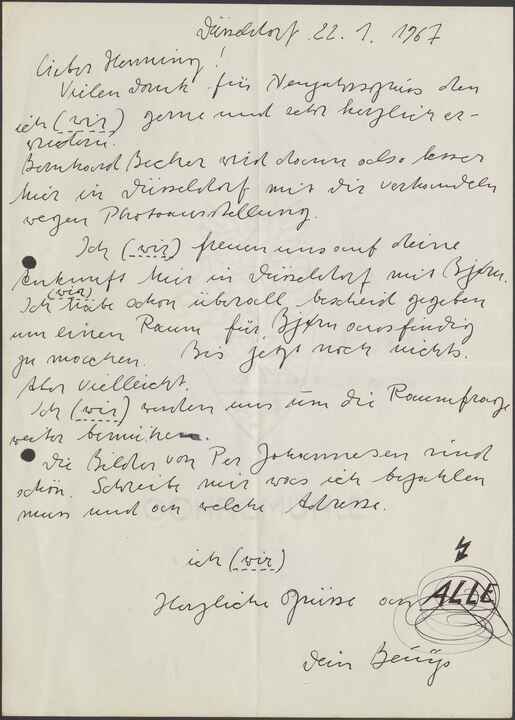 Düsseldorf 22. 1. 1967
Lieber Henning!
Vielen Dank für Neujahrsgruss den
ich (wir) gerne und sehr herzlich er-
widern.
Bernhard Becher wird dann also besser
hier in Düsseldorf mit dir verhandeln
wegen Photoausstellung.
Ich (wir) freuen uns auf deine
Ankunft hier in Düsseldorf mit Bjørn.
Ich (wir) habe schon überall bescheid gegeben
um einen Raum für Bjørn ausfindig
zu machen. Bis jetzt noch nichts.
Aber vielleicht.
Ich (wir) werden uns um die Raumfrage
weiter bemühen.
Die Bilder von Per Johannesen sind
schön. Schreibe mir was ich bezahlen
muss und an welche Adresse.
ich (wir)
Herzliche Grüsse an ALLE
Dein Beuys